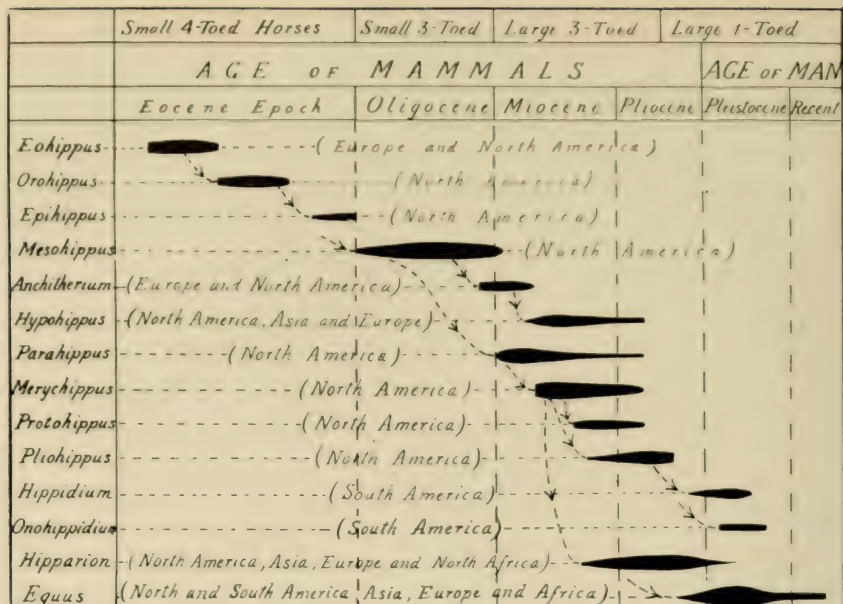 Small 4-Toed Horses Small 3-Toed Large 3-Toed Large 1-Toed
AGE OF MAMMALS AGE OF MAN
Eocene Epoch Oligocene Miocene Pliocene Pleistocene Recent
Eohippus (Europe and North America)
Orohippus (North America)
Epihippus (North America)
Mesohippus (North America)
Anchitherium (Europe and North America)
Hypohippus (North America, Asia and Europe)
Parahippus (North America)
Merychippus (North America)
Protohippus (North America)
Pliohippus (North America)
Hippidium (South America)
Onohippidium (South America)
Hipparion (North America, Asia, Europe and North Africa)
Equus (North and South America, Asia, Europe and Africa)